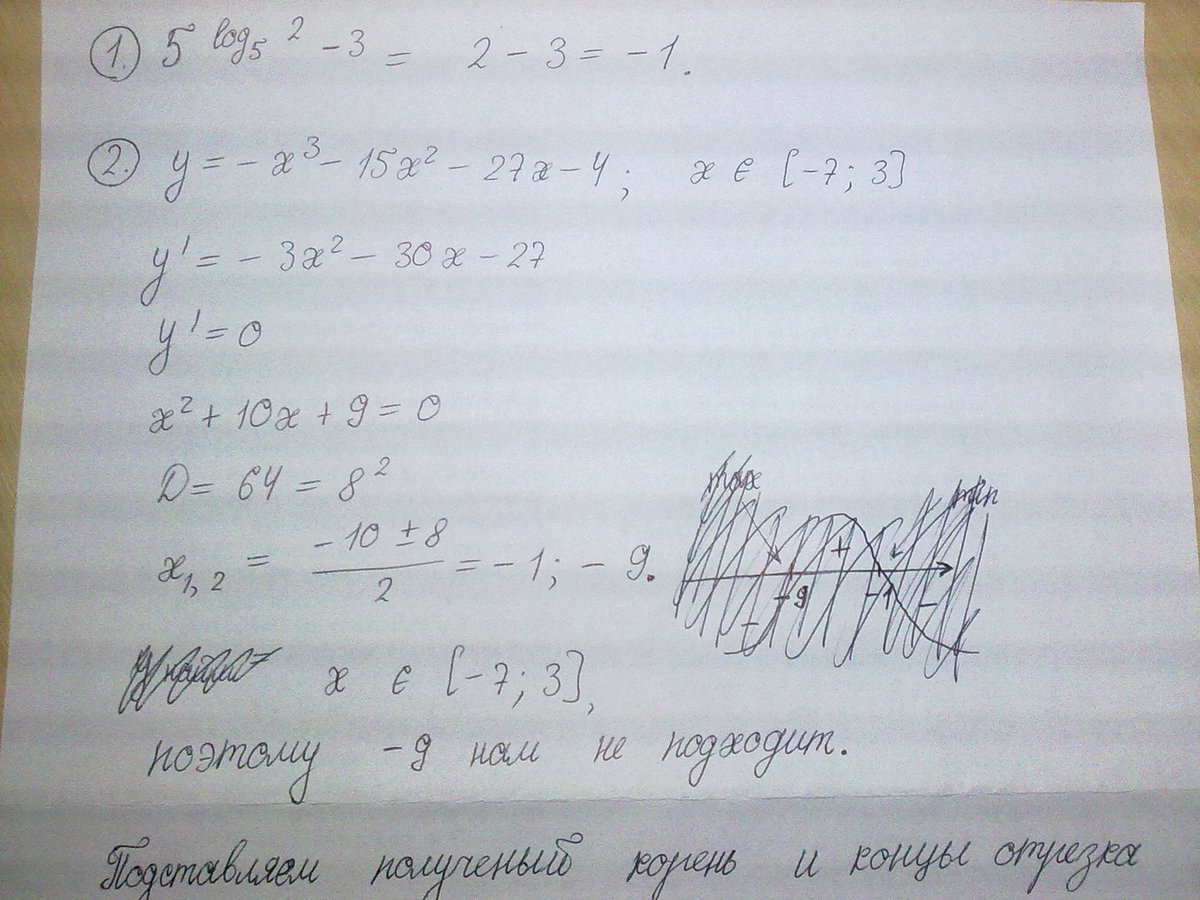 1. 5^{log_5 2} - 3 = 2 - 3 = -1.
2. y = -x³ - 15x² - 27x - 4; x ∈ [-7; 3]
y' = -3x² - 30x - 27
y' = 0
x² + 10x + 9 = 0
D = 64 = 8²
max min
+
-9 -1
- -
x_{1,2} = \frac{-10 ± 8}{2} = -1; -9.
x ∈ [-7; 3],
поэтому -9 нам не подходит.
Подставляем полученый корень и концы отрезка